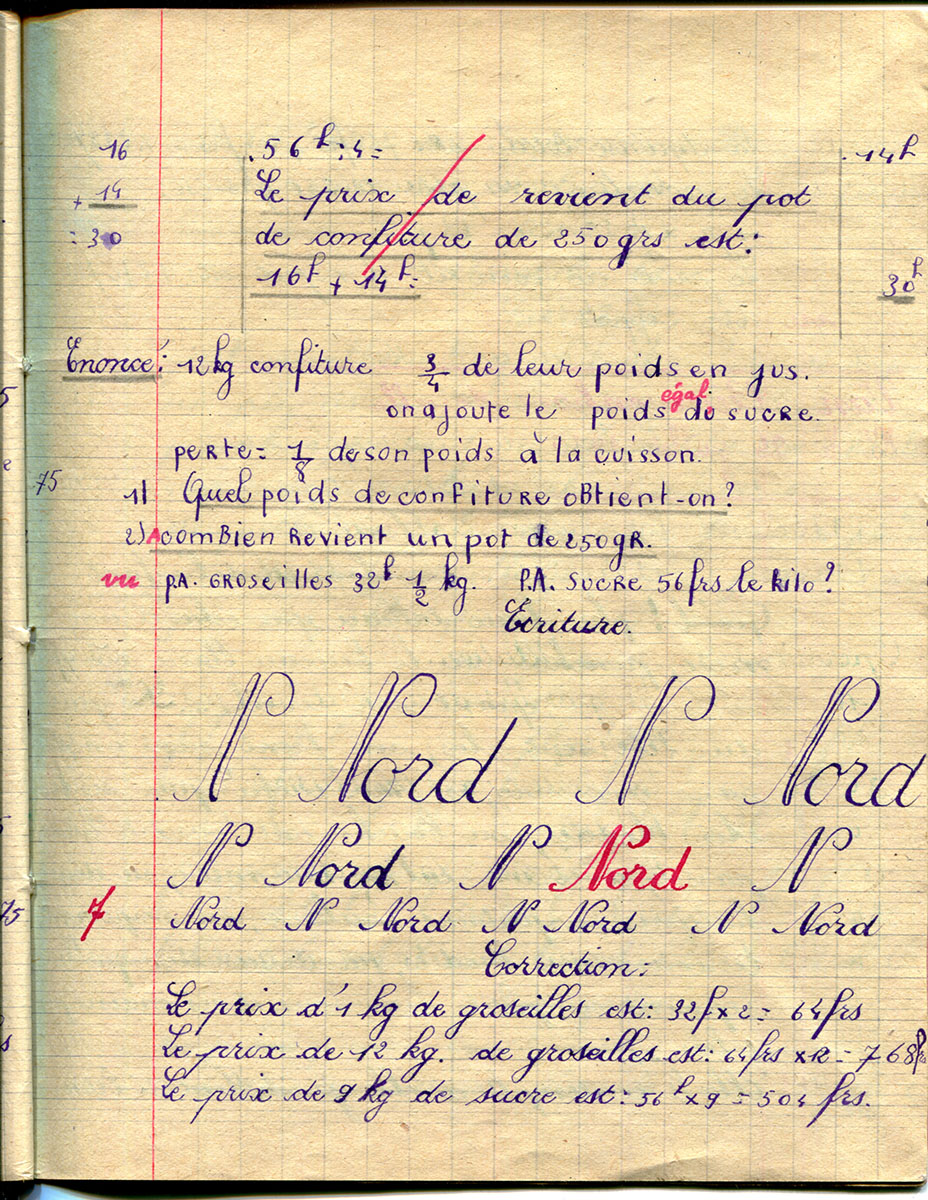 16
+ 14
= 30
56 f : 4 =
14 f
Le prix de revient du pot
de confiture de 250 grs est :
16 f + 14 f =
30 f
Enoncé : 12 kg confiture 3/4 de leur poids en jus.
on ajoute le poids égal du sucre.
perte = 1/8 de son poids à la cuisson.
75
1) Quel poids de confiture obtient-on ?
2) A combien revient un pot de 250 gr.
vu P.A. groseilles 32 f 1/2 kg. P.A. sucre 56 frs le kilo ?
Ecriture.
N Nord N Nord
N Nord N Nord N
7 Nord N Nord N Nord N Nord
Correction :
Le prix d'1 kg de groseilles est : 32 f x 2 = 64 frs
Le prix de 12 kg. de groseilles est : 64 frs x 12 = 768 frs
Le prix de 9 kg de sucre est : 56 f x 9 = 504 frs.